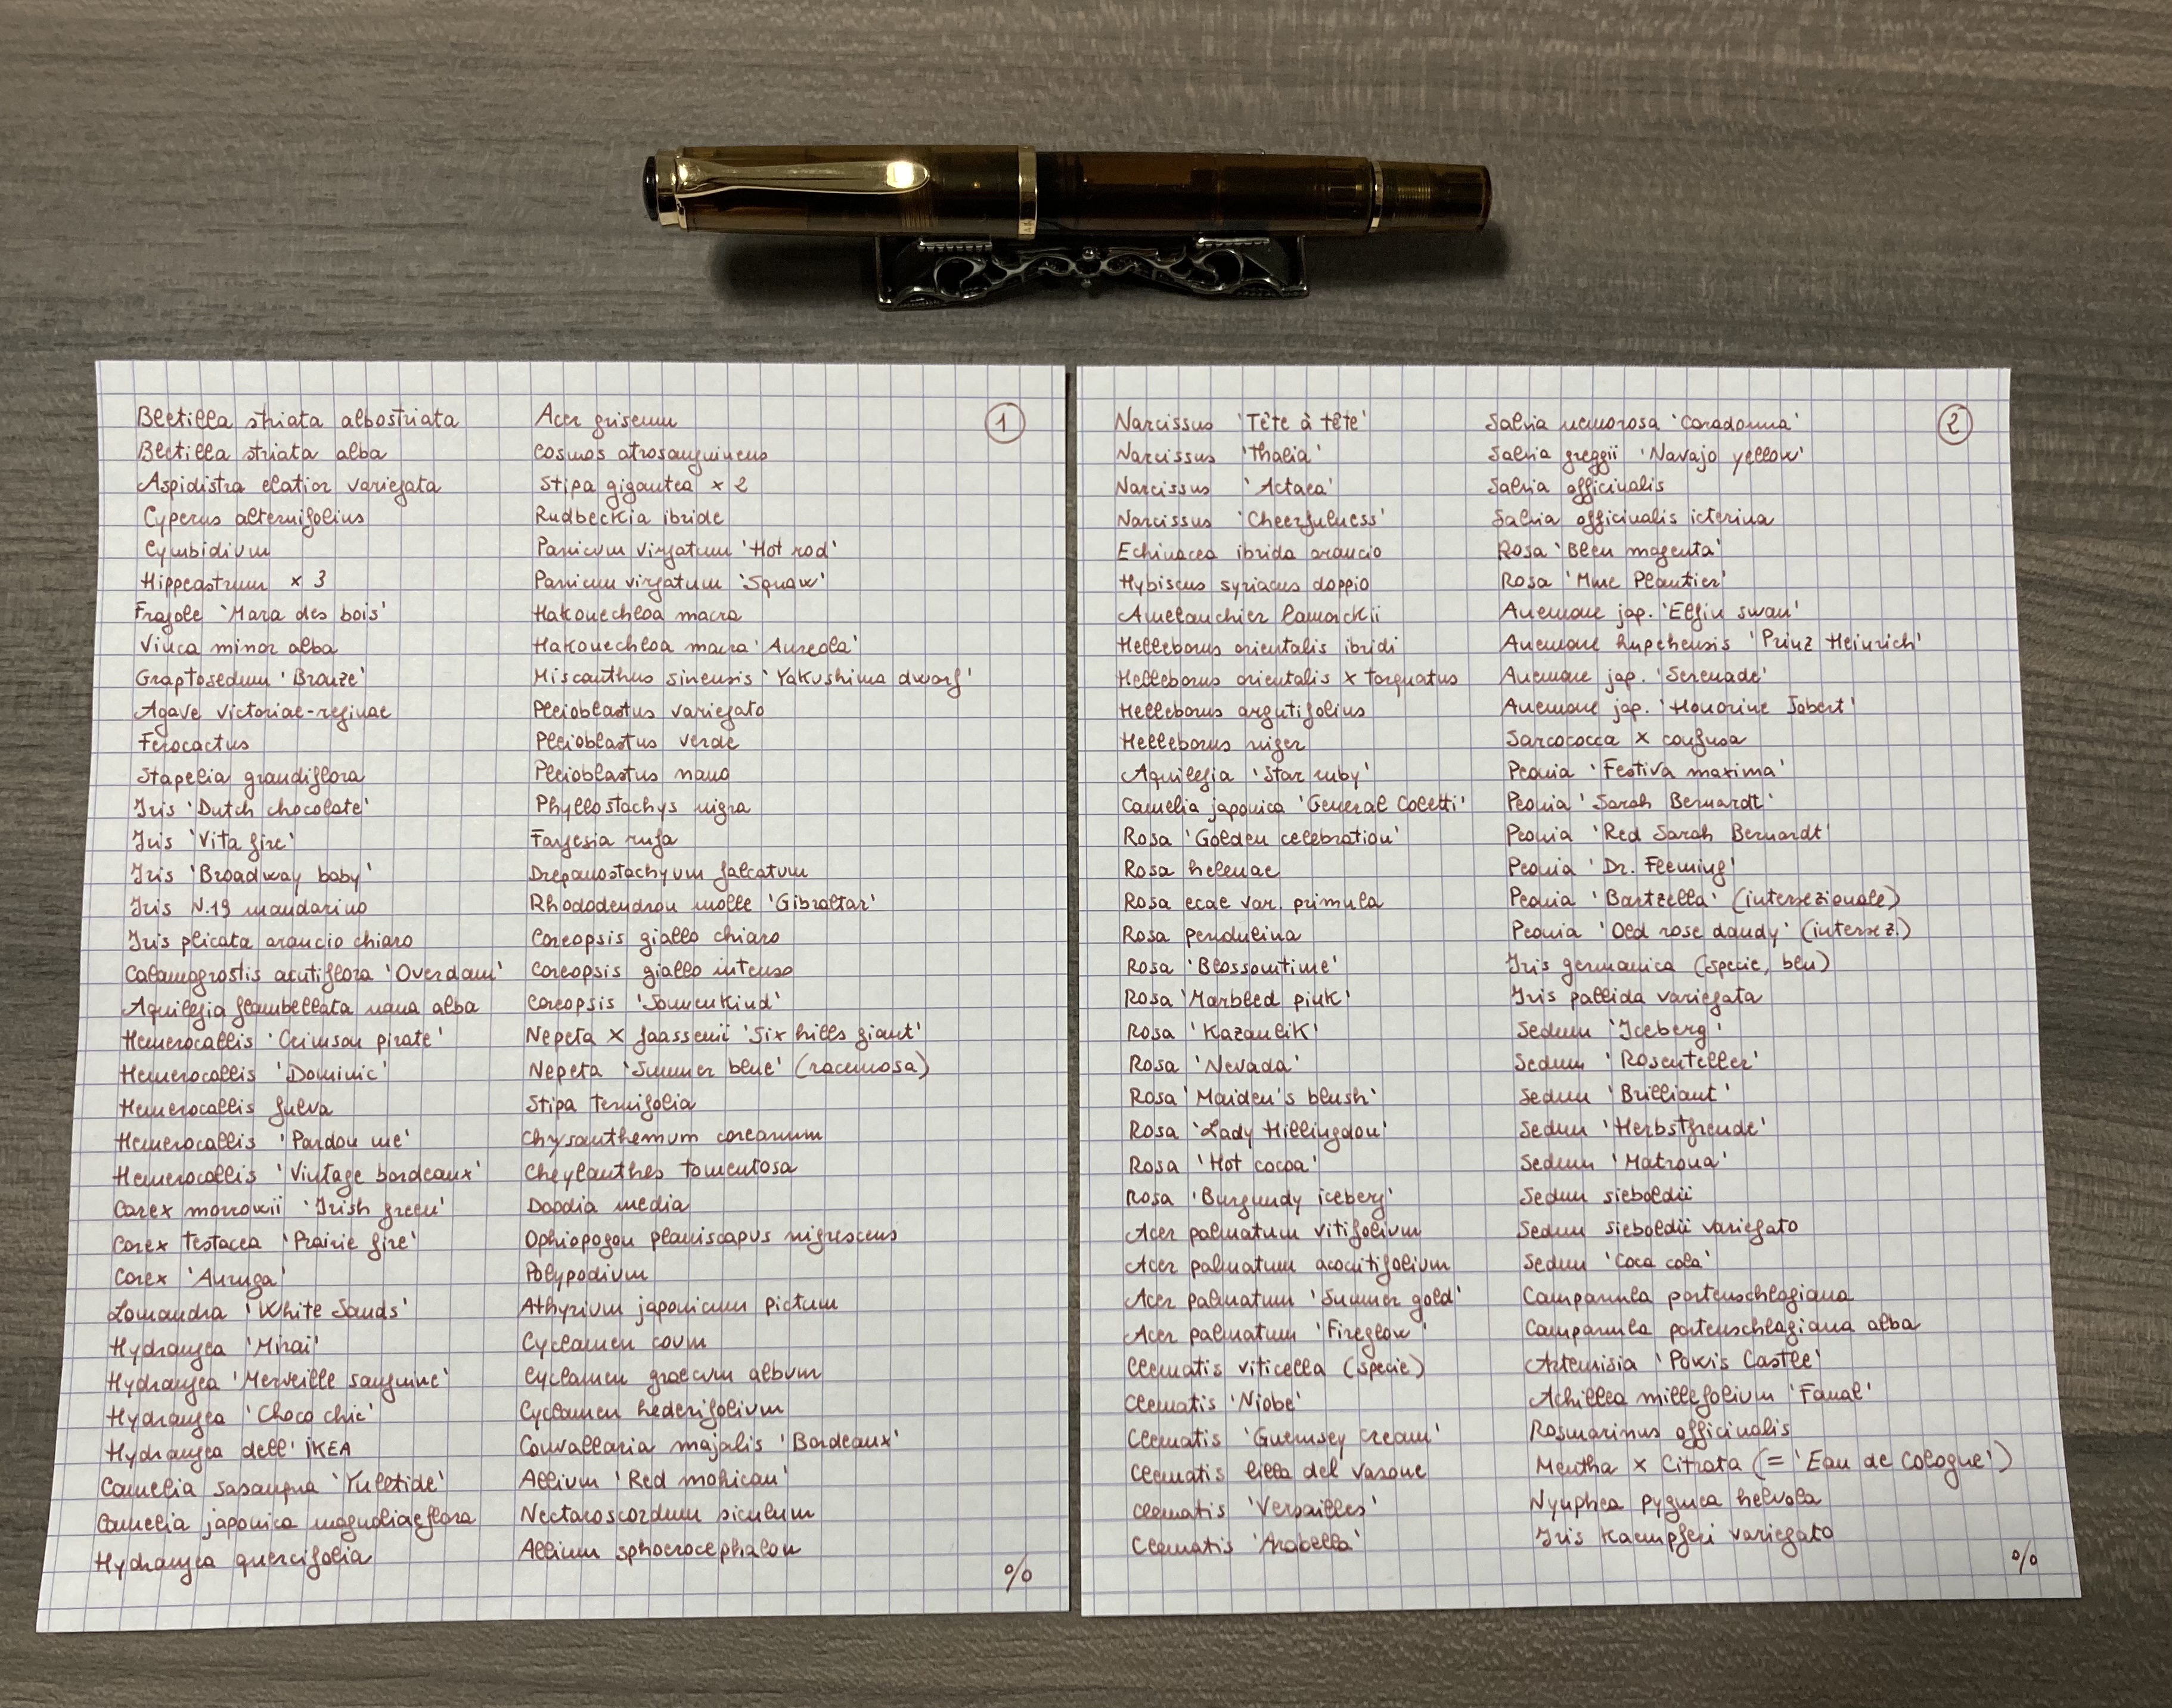 1
Bletilla striata albostriata
Bletilla striata alba
Aspidistra elatior variegata
Cyperus alternifolius
Cymbidium
Hippeastrum × 3
Fragole 'Mara des bois'
Vinca minor alba
Graptosedum 'Bronze'
Agave victoriae-reginae
Ferocactus
Stapelia grandiflora
Iris 'Dutch chocolate'
Iris 'Vita fire'
Iris 'Broadway baby'
Iris N.19 mandarino
Iris plicata arancio chiaro
Calamagrostis acutiflora 'Overdam'
Aquilegia flambellata nana alba
Hemerocallis 'Crimson pirate'
Hemerocallis 'Dominic'
Hemerocallis fulva
Hemerocallis 'Pardon me'
Hemerocallis 'Vintage bordeaux'
Carex morrowii 'Irish green'
Carex testacea 'Prairie fire'
Carex 'Auruga'
Lomandra 'White Sands'
Hydrangea 'Mirai'
Hydrangea 'Merveille sanguine'
Hydrangea 'Choco chic'
Hydrangea dell' IKEA
Camelia sasanqua 'Yuletide'
Camelia japonica magnoliaeflora
Hydrangea quercifolia
Acer griseum
Cosmos atrosanguineus
Stipa gigantea × 2
Rudbeckia ibride
Panicum virgatum 'Hot rod'
Panicum virgatum 'Squaw'
Hakonechloa macra
Hakonechloa macra 'Aureola'
Miscanthus sinensis 'Yakushima dwarf'
Pleioblastus variegato
Pleioblastus verde
Pleioblastus nano
Phyllostachys nigra
Fargesia rufa
Drepanostachyum falcatum
Rhododendron molle 'Gibraltar'
Coreopsis giallo chiaro
Coreopsis giallo intenso
Coreopsis 'Sonnenkind'
Nepeta × faassenii 'Six hills giant'
Nepeta 'Summer blue' (racemosa)
Stipa tenuifolia
Chrysanthemum coreanum
Cheylanthes tomentosa
Doodia media
Ophiopogon planiscapus nigrescens
Polypodium
Athyrium japonicum pictum
Cyclamen coum
Cyclamen graecum album
Cyclamen hederifolium
Convallaria majalis 'Bordeaux'
Allium 'Red mohican'
Nectaroscordum siculum
Allium sphaerocephalon
%
2
Narcissus 'Tête à tête'
Narcissus 'Thalia'
Narcissus 'Actaea'
Narcissus 'Cheerfulness'
Echinacea ibrida arancio
Hybiscus syriacus doppio
Amelanchier lamarckii
Helleborus orientalis ibridi
Helleborus orientalis × torquatus
Helleborus argutifolius
Helleborus niger
Aquilegia 'Star ruby'
Camelia japonica 'General Coletti'
Rosa 'Golden celebration'
Rosa helenae
Rosa ecae var. primula
Rosa pendulina
Rosa 'Blossomtime'
Rosa 'Marbled pink'
Rosa 'Kazanlik'
Rosa 'Nevada'
Rosa 'Maiden's blush'
Rosa 'Lady Hillingdon'
Rosa 'Hot cocoa'
Rosa 'Burgundy iceberg'
Acer palmatum vitifolium
Acer palmatum aconitifolium
Acer palmatum 'Summer gold'
Acer palmatum 'Fireglow'
Clematis viticella (specie)
Clematis 'Niobe'
Clematis 'Guernsey cream'
Clematis lilla del vasone
Clematis 'Versailles'
Clematis 'Arabella'
Salvia nemorosa 'Caradonna'
Salvia greggii 'Navajo yellow'
Salvia officinalis
Salvia officinalis icterina
Rosa 'Bleu magenta'
Rosa 'Mme Plantier'
Anemone jap. 'Elfin swan'
Anemone hupehensis 'Prinz Heinrich'
Anemone jap. 'Serenade'
Anemone jap. 'Honorine Jobert'
Sarcococca × confusa
Peonia 'Festiva maxima'
Peonia 'Sarah Bernardt'
Peonia 'Red Sarah Bernardt'
Peonia 'Dr. Fleming'
Peonia 'Bartzella' (intersezionale)
Peonia 'Old rose dandy' (intersez.)
Iris germanica (specie, blu)
Iris pallida variegata
Sedum 'Iceberg'
Sedum 'Rosenteller'
Sedum 'Brilliant'
Sedum 'Herbstfreude'
Sedum 'Matrona'
Sedum sieboldii
Sedum sieboldii variegato
Sedum 'Coca cola'
Campanula portenschlagiana
Campanula portenschlagiana alba
Artemisia 'Powis Castle'
Achillea millefolium 'Fanal'
Rosmarinus officinalis
Mentha × Citrata (= 'Eau de Cologne')
Nymphea pygmea helvola
Iris Kaempferi variegato
%